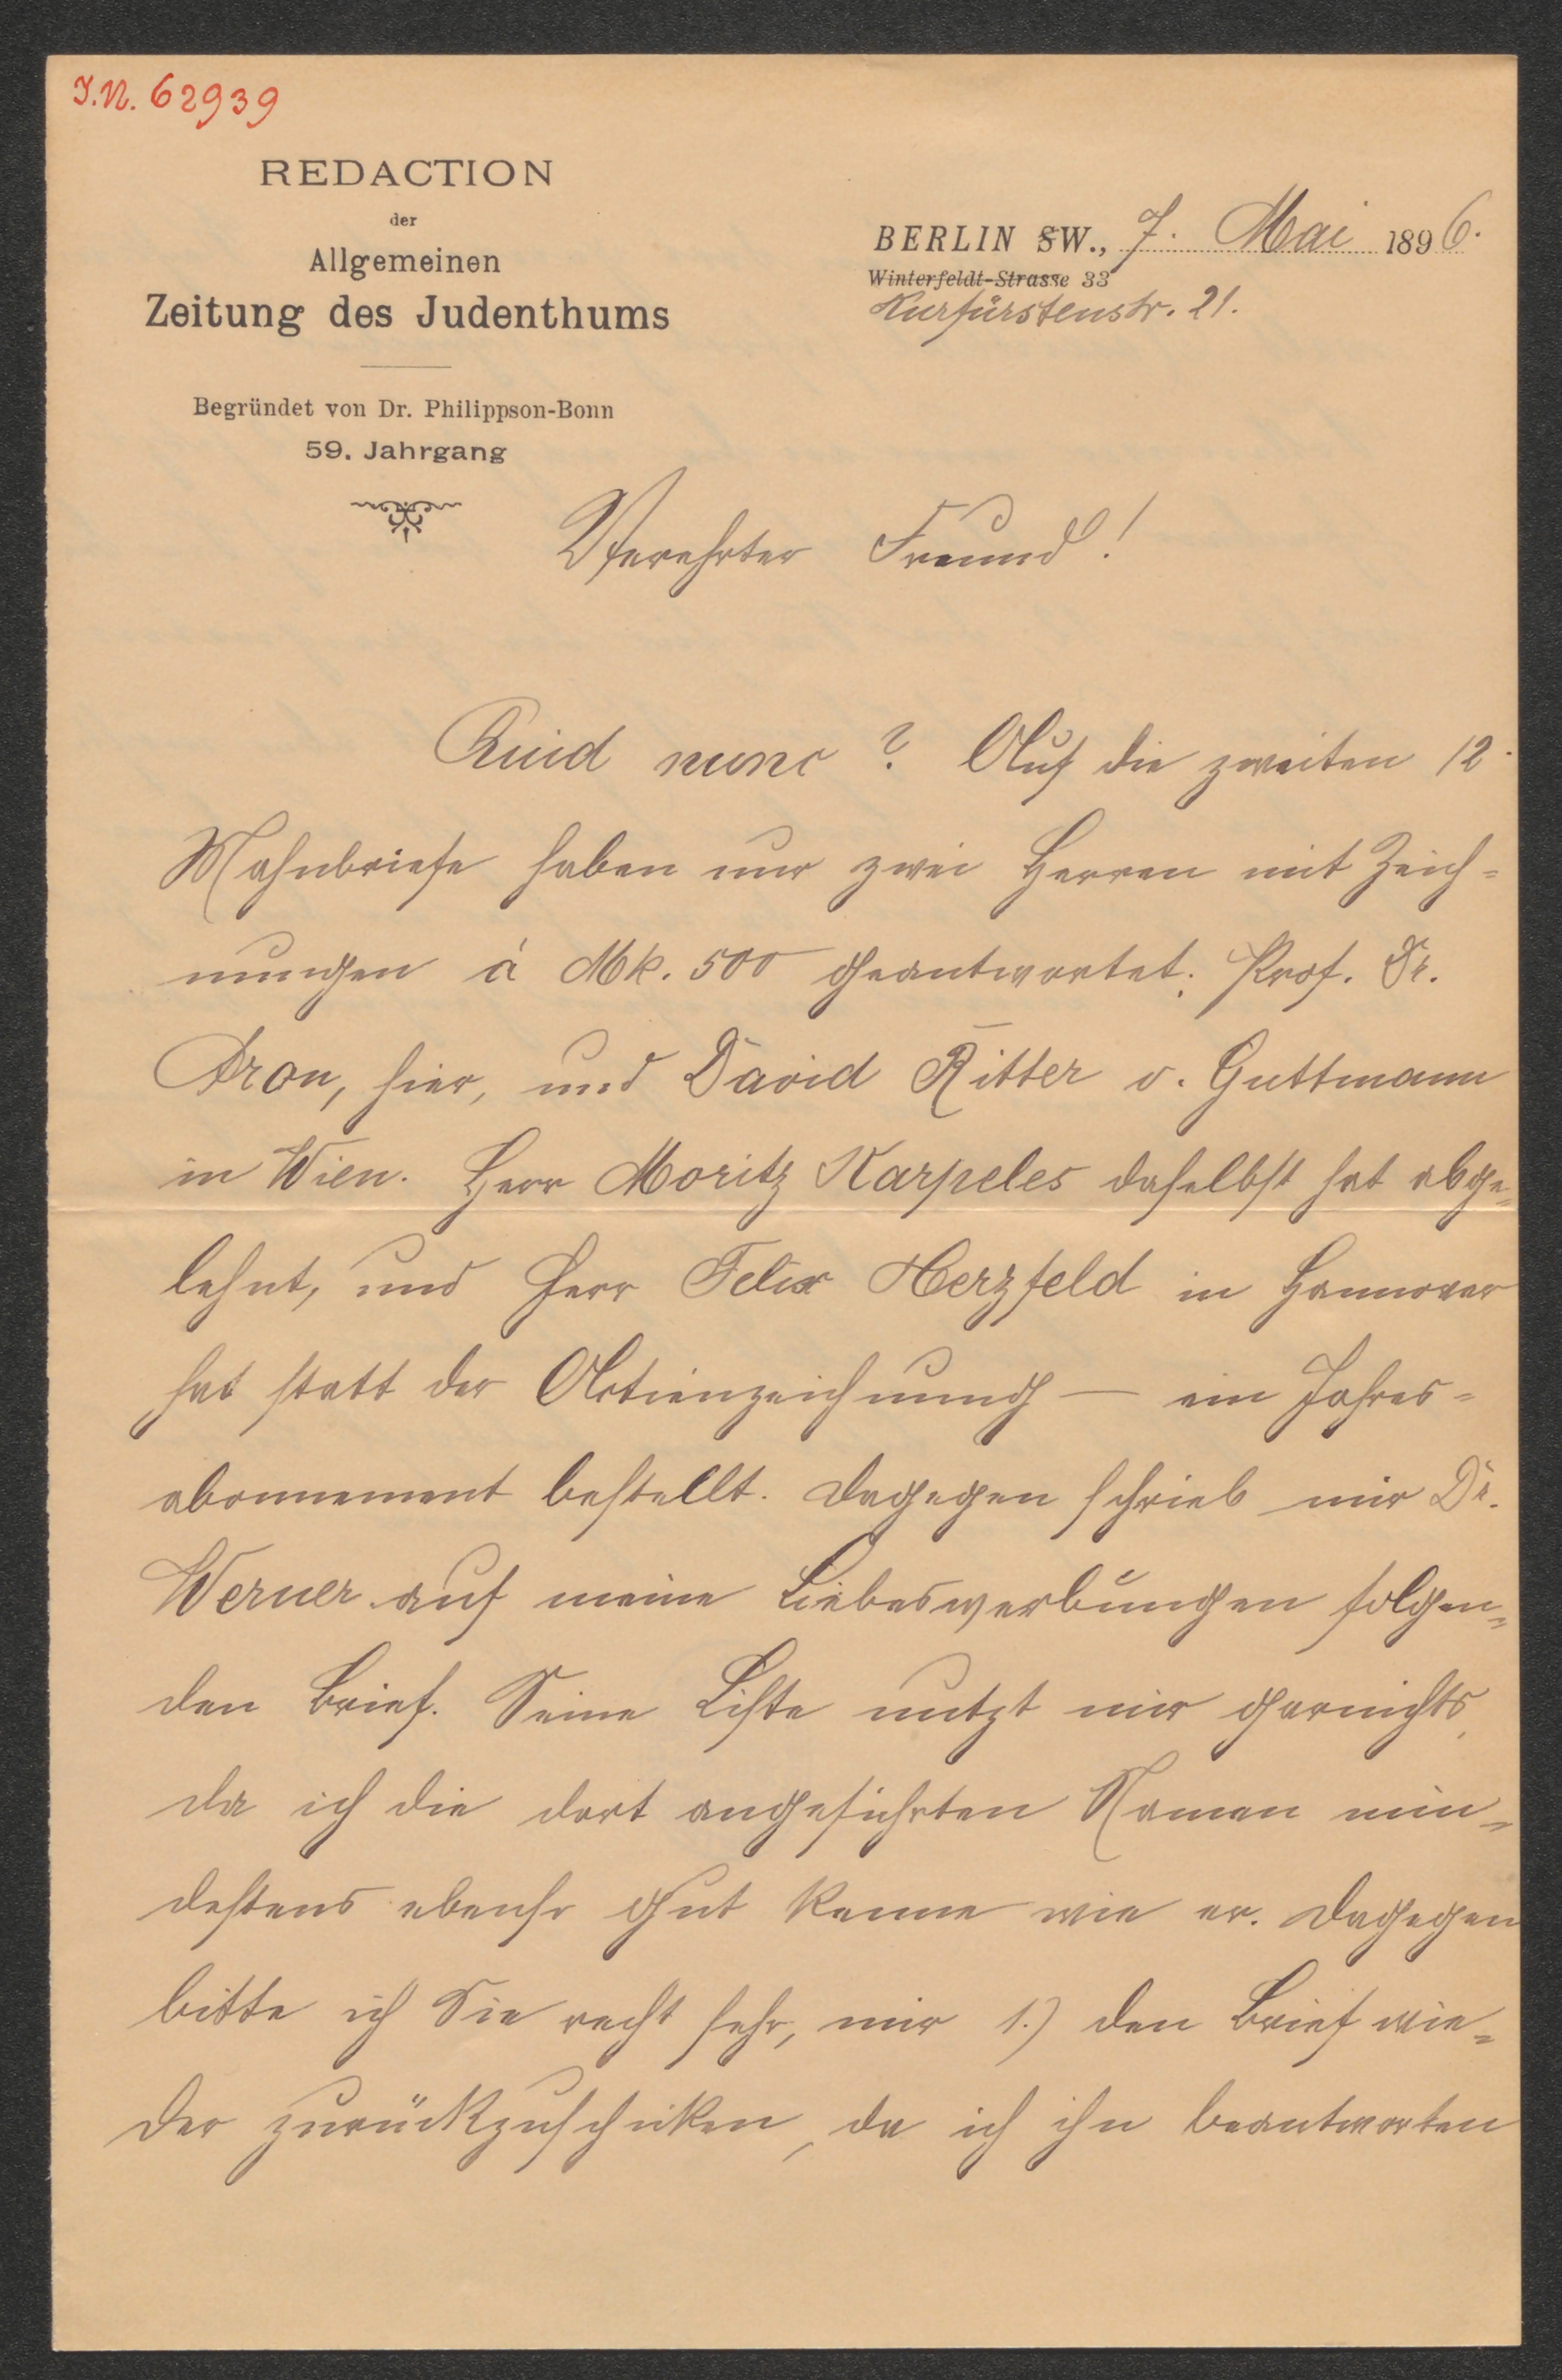 J.N. 62939
REDACTION
der
Allgemeinen
Zeitung des Judenthums
Begründet von Dr. Philippson-Bonn
59. Jahrgang
BERLIN SW., 7. Mai 1896.
Winterfeldt-Strasse 33
Kurfürstenstr. 21.
Verehrter Freund!
Quid nunc? Auf die zweiten 12
Mahnbriefe haben nur zwei Herren mit Zeich=
nungen à Mk. 500 geantwortet: Prof. Dr.
Aron, hier, und David Ritter v. Guttmann
in Wien. Herr Moritz Karpeles daselbst hat abge=
lehnt, und Herr Felix Herzfeld in Hannover
hat statt der Aktienzeichnung — ein Jahres=
abonnement bestellt. Dagegen schrieb mir Dr.
Werner auf meine Liebeswerbungen folgen=
den Brief. Seine Liste nutzt mir garnichts,
da ich die dort angeführten Namen min=
destens ebenso gut kenne wie er. Dagegen
bitte ich Sie recht sehr, mir 1.) den Brief wie=
der zurückzuschicken, da ich ihn beantworten